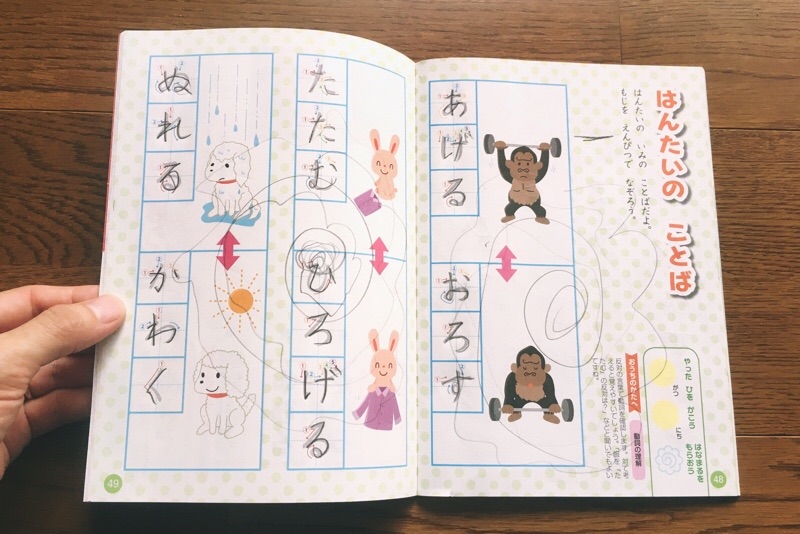 はんたいの ことば
はんたいの いみの ことばだよ。
もじを えんぴつで なぞろう。
やった ひを かこう
がつ
にち
はなまるを
もらおう
おうちのかたへ
動詞の理解
あげる
おろす
たたむ
ひろげる
ぬれる
かわく
48
49